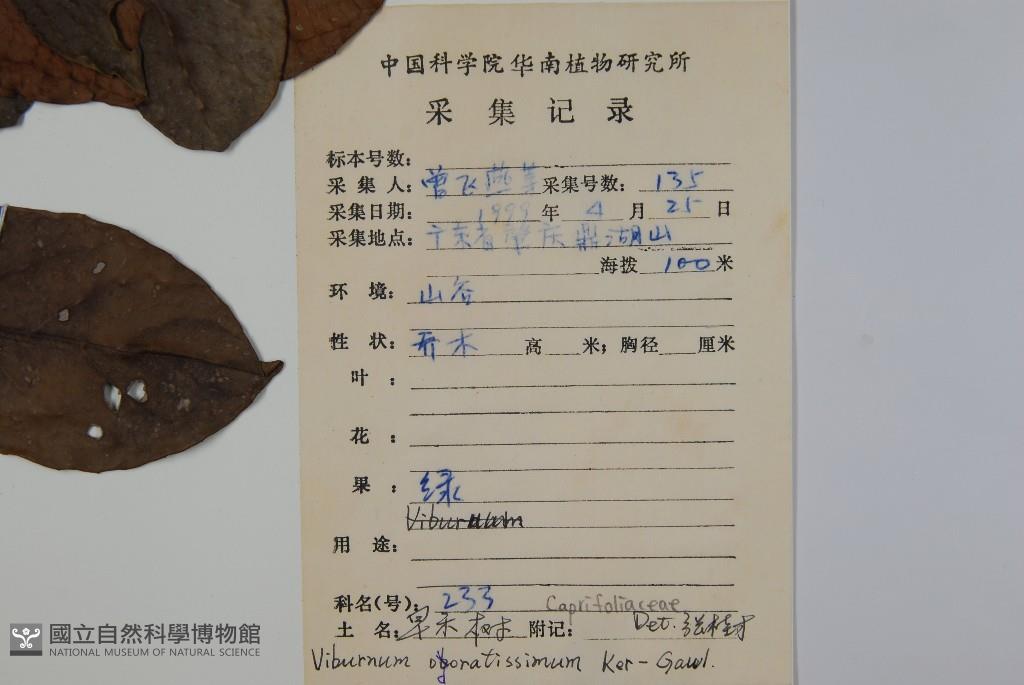 中国科学院华南植物研究所
采集记录
标本号数:
采集人: 曾飞燕等 采集号数: 135
采集日期: 1999年 4月 25日
采集地点: 广东省肇庆鼎湖山
海拨 100米
环境: 山谷
性状: 乔木 高 米; 胸径 厘米
叶:
花:
果: 绿
Viburnum
用途:
科名(号): 233 Caprifoliaceae
土名: 早禾树 附记: Det. 张桂才
Viburnum odoratissimum Ker-Gawl.
國立自然科學博物館
NATIONAL MUSEUM OF NATURAL SCIENCE